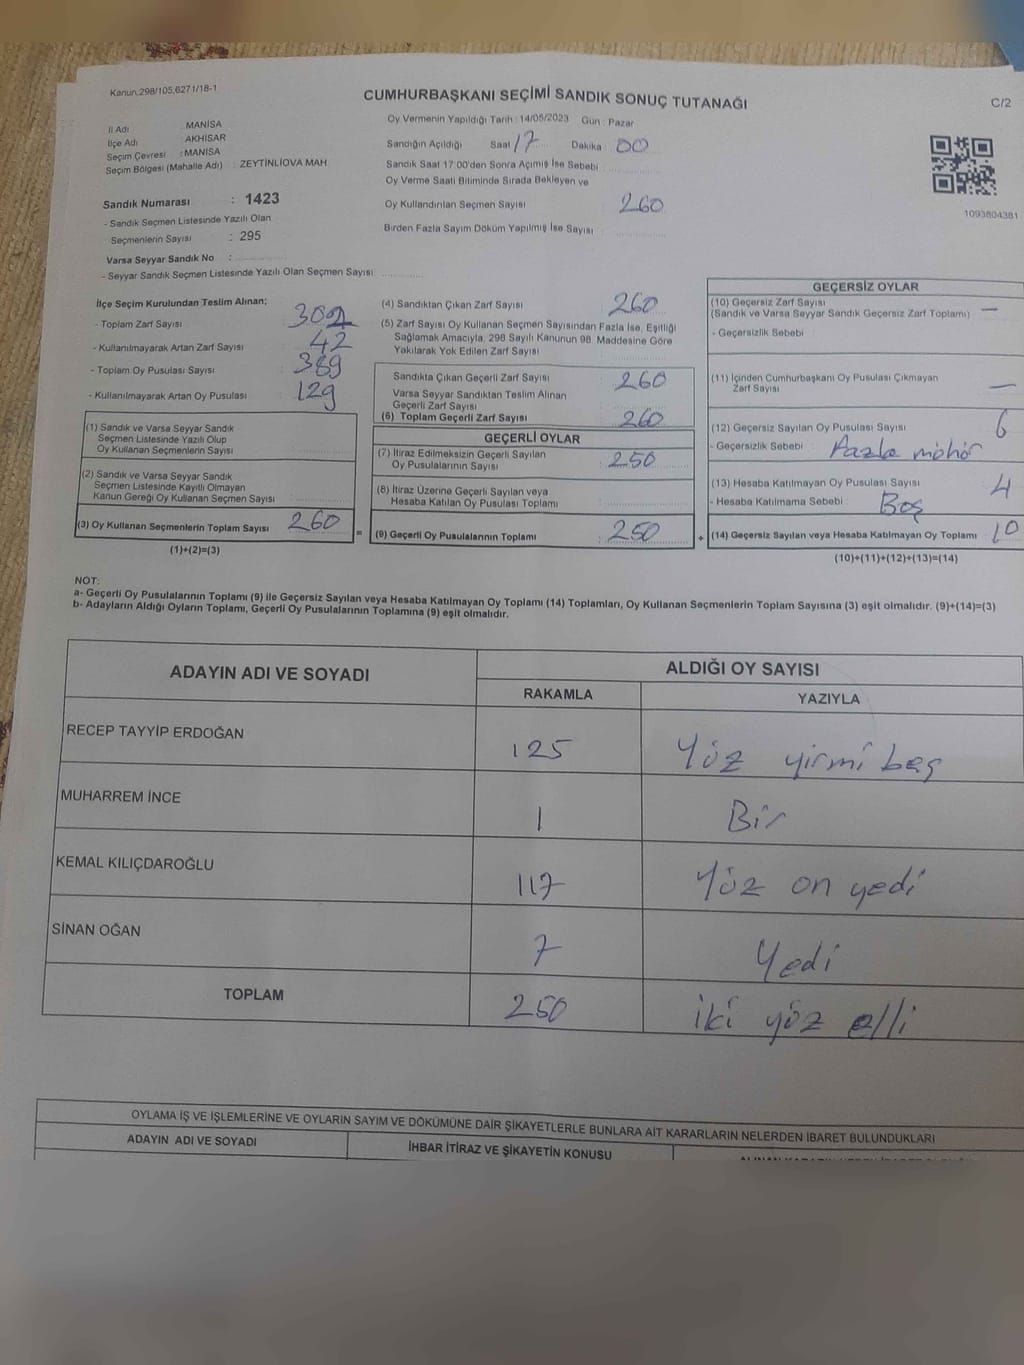 Kanun.298/105,6271/18-1
CUMHURBAŞKANI SEÇİMİ SANDIK SONUÇ TUTANAĞI
C/2
İl Adı : MANİSA
İlçe Adı : AKHİSAR
Seçim Çevresi : MANİSA
Seçim Bölgesi (Mahalle Adı) : ZEYTİNLİOVA MAH
Sandık Numarası : 1423
- Sandık Seçmen Listesinde Yazılı Olan
Seçmenlerin Sayısı : 295
Varsa Seyyar Sandık No :
- Seyyar Sandık Seçmen Listesinde Yazılı Olan Seçmen Sayısı:
Oy Vermenin Yapıldığı Tarih : 14/05/2023 Gün : Pazar
Sandığın Açıldığı Saat 17 Dakika : 00
Sandık Saat 17:00'den Sonra Açımış İse Sebebi
Oy Verme Saati Bitiminde Sırada Bekleyen ve
Oy Kullandırılan Seçmen Sayısı 260
Birden Fazla Sayım Döküm Yapılmış İse Sayısı :
1093804381
İlçe Seçim Kurulundan Teslim Alınan;
- Toplam Zarf Sayısı : 302
- Kullanılmayarak Artan Zarf Sayısı : 42
- Toplam Oy Pusulası Sayısı : 389
- Kullanılmayarak Artan Oy Pusulası : 129
(1) Sandık ve Varsa Seyyar Sandık
Seçmen Listesinde Yazılı Olup
Oy Kullanan Seçmenlerin Sayısı :
(2) Sandık ve Varsa Seyyar Sandık
Seçmen Listesinde Kayıtlı Olmayan
Kanun Gereği Oy Kullanan Seçmen Sayısı :
(3) Oy Kullanan Seçmenlerin Toplam Sayısı 260
(1)+(2)=(3)
=
(4) Sandıktan Çıkan Zarf Sayısı : 260
(5) Zarf Sayısı Oy Kullanan Seçmen Sayısından Fazla İse, Eşitliği
Sağlamak Amacıyla, 298 Sayılı Kanunun 98. Maddesine Göre
Yakılarak Yok Edilen Zarf Sayısı :
Sandıkta Çıkan Geçerli Zarf Sayısı : 260
Varsa Seyyar Sandıktan Teslim Alınan
Geçerli Zarf Sayısı :
(6) Toplam Geçerli Zarf Sayısı : 260
GEÇERLİ OYLAR
(7) İtiraz Edilmeksizin Geçerli Sayılan
Oy Pusulalarının Sayısı : 250
(8) İtiraz Üzerine Geçerli Sayılan veya
Hesaba Katılan Oy Pusulası Toplamı :
(9) Geçerli Oy Pusulalarının Toplamı : 250
+
GEÇERSİZ OYLAR
(10) Geçersiz Zarf Sayısı
(Sandık ve Varsa Seyyar Sandık Geçersiz Zarf Toplamı) : —
- Geçersizlik Sebebi :
(11) İçinden Cumhurbaşkanı Oy Pusulası Çıkmayan
Zarf Sayısı : —
(12) Geçersiz Sayılan Oy Pusulası Sayısı : 6
- Geçersizlik Sebebi : Fazla möhör
(13) Hesaba Katılmayan Oy Pusulası Sayısı : 4
- Hesaba Katılmama Sebebi : Boş
(14) Geçersiz Sayılan veya Hesaba Katılmayan Oy Toplamı : 10
(10)+(11)+(12)+(13)=(14)
NOT:
a- Geçerli Oy Pusulalarının Toplamı (9) ile Geçersiz Sayılan veya Hesaba Katılmayan Oy Toplamı (14) Toplamları, Oy Kullanan Seçmenlerin Toplam Sayısına (3) eşit olmalıdır. (9)+(14)=(3)
b- Adayların Aldığı Oyların Toplamı, Geçerli Oy Pusulalarının Toplamına (9) eşit olmalıdır.
ADAYIN ADI VE SOYADI
ALDIĞI OY SAYISI
RAKAMLA YAZIYLA
RECEP TAYYİP ERDOĞAN 125 Yöz yirmi beş
MUHARREM İNCE 1 Bir
KEMAL KILIÇDAROĞLU 117 Yöz on yedi
SİNAN OĞAN 7 Yedi
TOPLAM 250 iki yöz elli
OYLAMA İŞ VE İŞLEMLERİNE VE OYLARIN SAYIM VE DÖKÜMÜNE DAİR ŞİKAYETLERLE BUNLARA AİT KARARLARIN NELERDEN İBARET BULUNDUKLARI
ADAYIN ADI VE SOYADI İHBAR İTİRAZ VE ŞİKAYETİN KONUSU